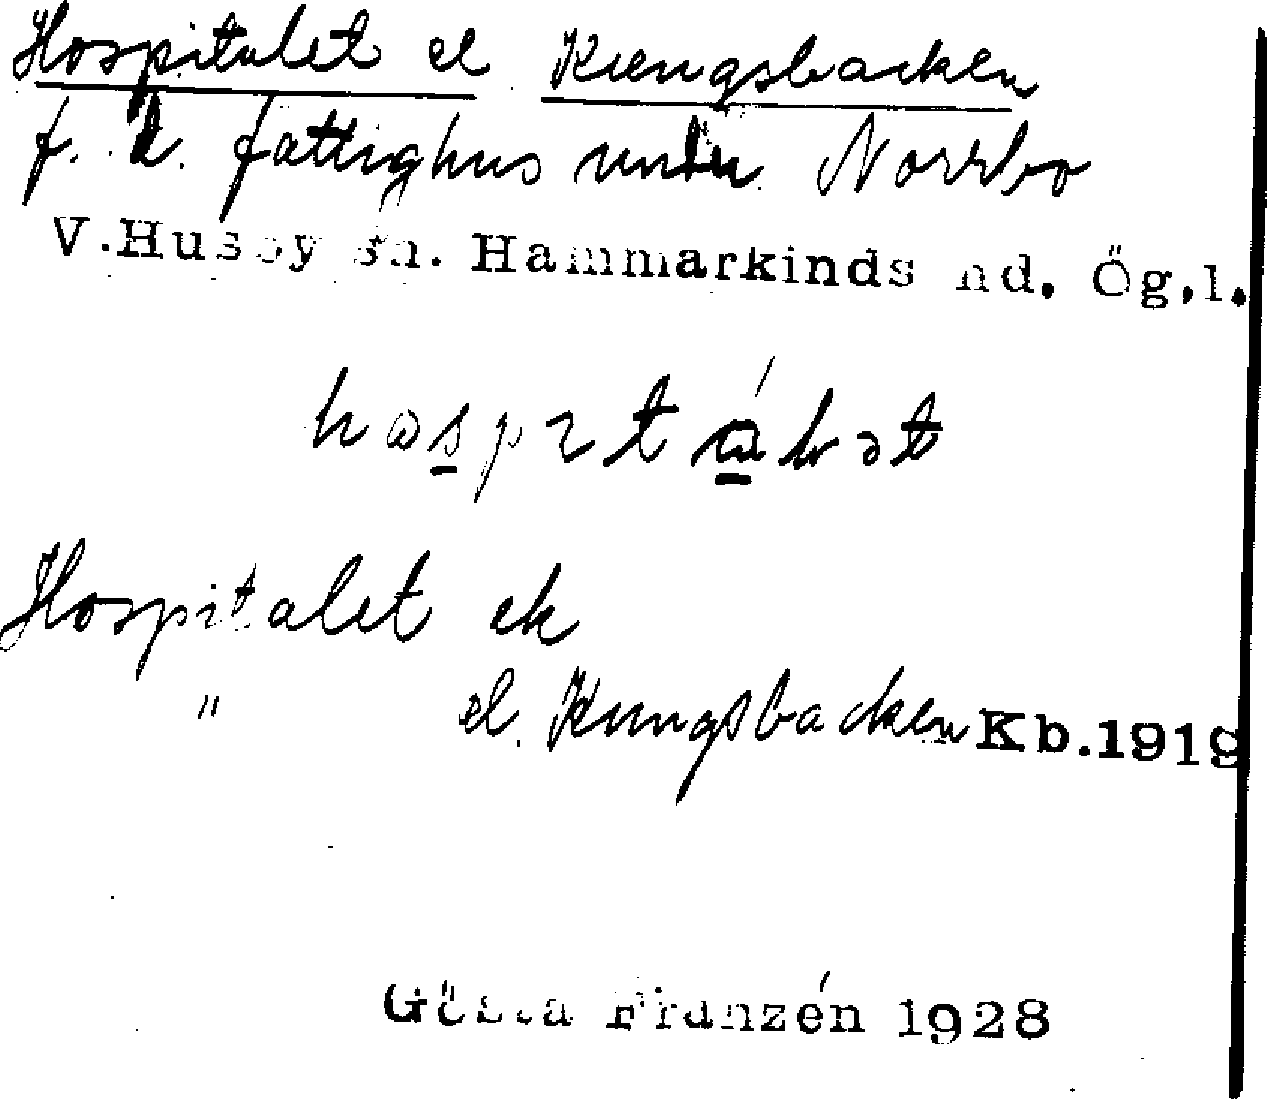 Hospitalet el Kungsbacken
f. d. fattighus under Norrbo
V.Husby sn. Hammarkinds hd. Ög.l.
hospitálət
Hospitalet ek
" el. Kungsbacken Kb.1919
Gösta Franzén 1928